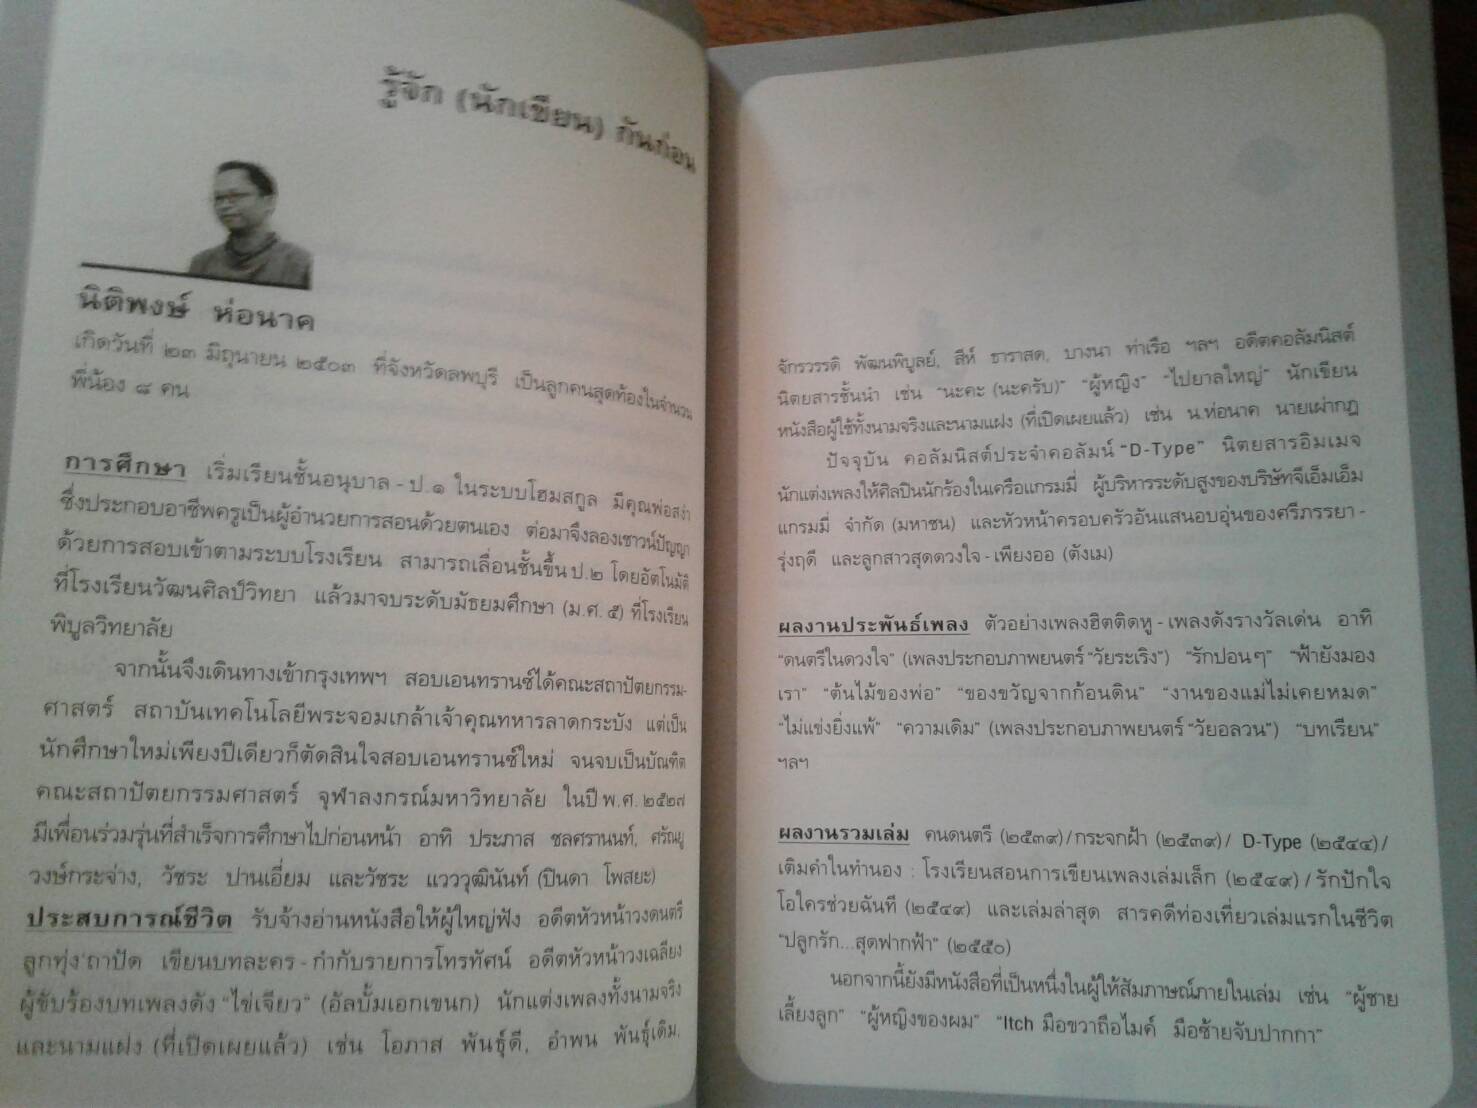 รู้จัก (นักเขียน) กันก่อน
นิติพงษ์ ห่อนาค
เกิดวันที่ ๒๓ มิถุนายน ๒๕๐๓ ที่จังหวัดลพบุรี เป็นลูกคนสุดท้องในจำนวน
พี่น้อง ๘ คน
การศึกษา เริ่มเรียนชั้นอนุบาล - ป.๑ ในระบบโฮมสกูล มีคุณพ่อสง่า
ซึ่งประกอบอาชีพครูเป็นผู้อำนวยการสอนด้วยตนเอง ต่อมาจึงลองเชาวน์ปัญญา
ด้วยการสอบเข้าตามระบบโรงเรียน สามารถเลื่อนชั้นขึ้น ป.๒ โดยอัตโนมัติ
ที่โรงเรียนวัฒนศิลป์วิทยา แล้วมาจบระดับมัธยมศึกษา (ม.ศ. ๕) ที่โรงเรียน
พิบูลวิทยาลัย
จากนั้นจึงเดินทางเข้ากรุงเทพฯ สอบเอนทรานซ์ได้คณะสถาปัตยกรรม-
ศาสตร์ สถาบันเทคโนโลยีพระจอมเกล้าเจ้าคุณทหารลาดกระบัง แต่เป็น
นักศึกษาใหม่เพียงปีเดียวก็ตัดสินใจสอบเอนทรานซ์ใหม่ จนจบเป็นบัณฑิต
คณะสถาปัตยกรรมศาสตร์ จุฬาลงกรณ์มหาวิทยาลัย ในปี พ.ศ. ๒๕๒๗
มีเพื่อนร่วมรุ่นที่สำเร็จการศึกษาไปก่อนหน้า อาทิ ประภาส ชลศรานนท์, ศรัณยู
วงษ์กระจ่าง, วัชระ ปานเอี่ยม และวัชระ แวววุฒินันท์ (ปินดา โพสยะ)
ประสบการณ์ชีวิต รับจ้างอ่านหนังสือให้ผู้ใหญ่ฟัง อดีตหัวหน้าวงดนตรี
ลูกทุ่ง'ถาปัด เขียนบทละคร - กำกับรายการโทรทัศน์ อดีตหัวหน้าวงเฉลียง
ผู้ขับร้องบทเพลงดัง "ไข่เจียว" (อัลบั้มเอกเขนก) นักแต่งเพลงทั้งนามจริง
และนามแฝง (ที่เปิดเผยแล้ว) เช่น โอภาส พันธุ์ดี, อำพน พันธุ์เดิม,
จักรวรรดิ พัฒนพิบูลย์, สีห์ ธาราสด, บางนา ท่าเรือ ฯลฯ อดีตคอลัมนิสต์
นิตยสารชั้นนำ เช่น "นะคะ (นะครับ)" "ผู้หญิง" "ไปยาลใหญ่" นักเขียน
หนังสือผู้ใช้ทั้งนามจริงและนามแฝง (ที่เปิดเผยแล้ว) เช่น น.ห่อนาค นายเผ่ากฎ
ปัจจุบัน คอลัมนิสต์ประจำคอลัมน์ "D-Type" นิตยสารอิมเมจ
นักแต่งเพลงให้ศิลปินนักร้องในเครือแกรมมี่ ผู้บริหารระดับสูงของบริษัทจีเอ็มเอ็ม
แกรมมี่ จำกัด (มหาชน) และหัวหน้าครอบครัวอันแสนอบอุ่นของศรีภรรยา -
รุ่งฤดี และลูกสาวสุดดวงใจ - เพียงออ (ตังเม)
ผลงานประพันธ์เพลง ตัวอย่างเพลงฮิตติดหู - เพลงดังรางวัลเด่น อาทิ
"ดนตรีในดวงใจ" (เพลงประกอบภาพยนตร์ "วัยระเริง") "รักปอนๆ" "ฟ้ายังมอง
เรา" "ต้นไม้ของพ่อ" "ของขวัญจากก้อนดิน" "งานของแม่ไม่เคยหมด"
"ไม่แข่งยิ่งแพ้" "ความเดิม" (เพลงประกอบภาพยนตร์ "วัยอลวน") "บทเรียน"
ฯลฯ
ผลงานรวมเล่ม คนดนตรี (๒๕๓๙) / กระจกฝ้า (๒๕๓๙) / D-Type (๒๕๔๔) /
เติมคำในทำนอง : โรงเรียนสอนการเขียนเพลงเล่มเล็ก (๒๕๔๙) / รักปักใจ
โอใครช่วยฉันที (๒๕๔๙) และเล่มล่าสุด สารคดีท่องเที่ยวเล่มแรกในชีวิต
"ปลูกรัก...สุดฟากฟ้า" (๒๕๕๐)
นอกจากนี้ยังมีหนังสือที่เป็นหนึ่งในผู้ให้สัมภาษณ์ภายในเล่ม เช่น "ผู้ชาย
เลี้ยงลูก" "ผู้หญิงของผม" "Itch มือขวาถือไมค์ มือซ้ายจับปากกา"